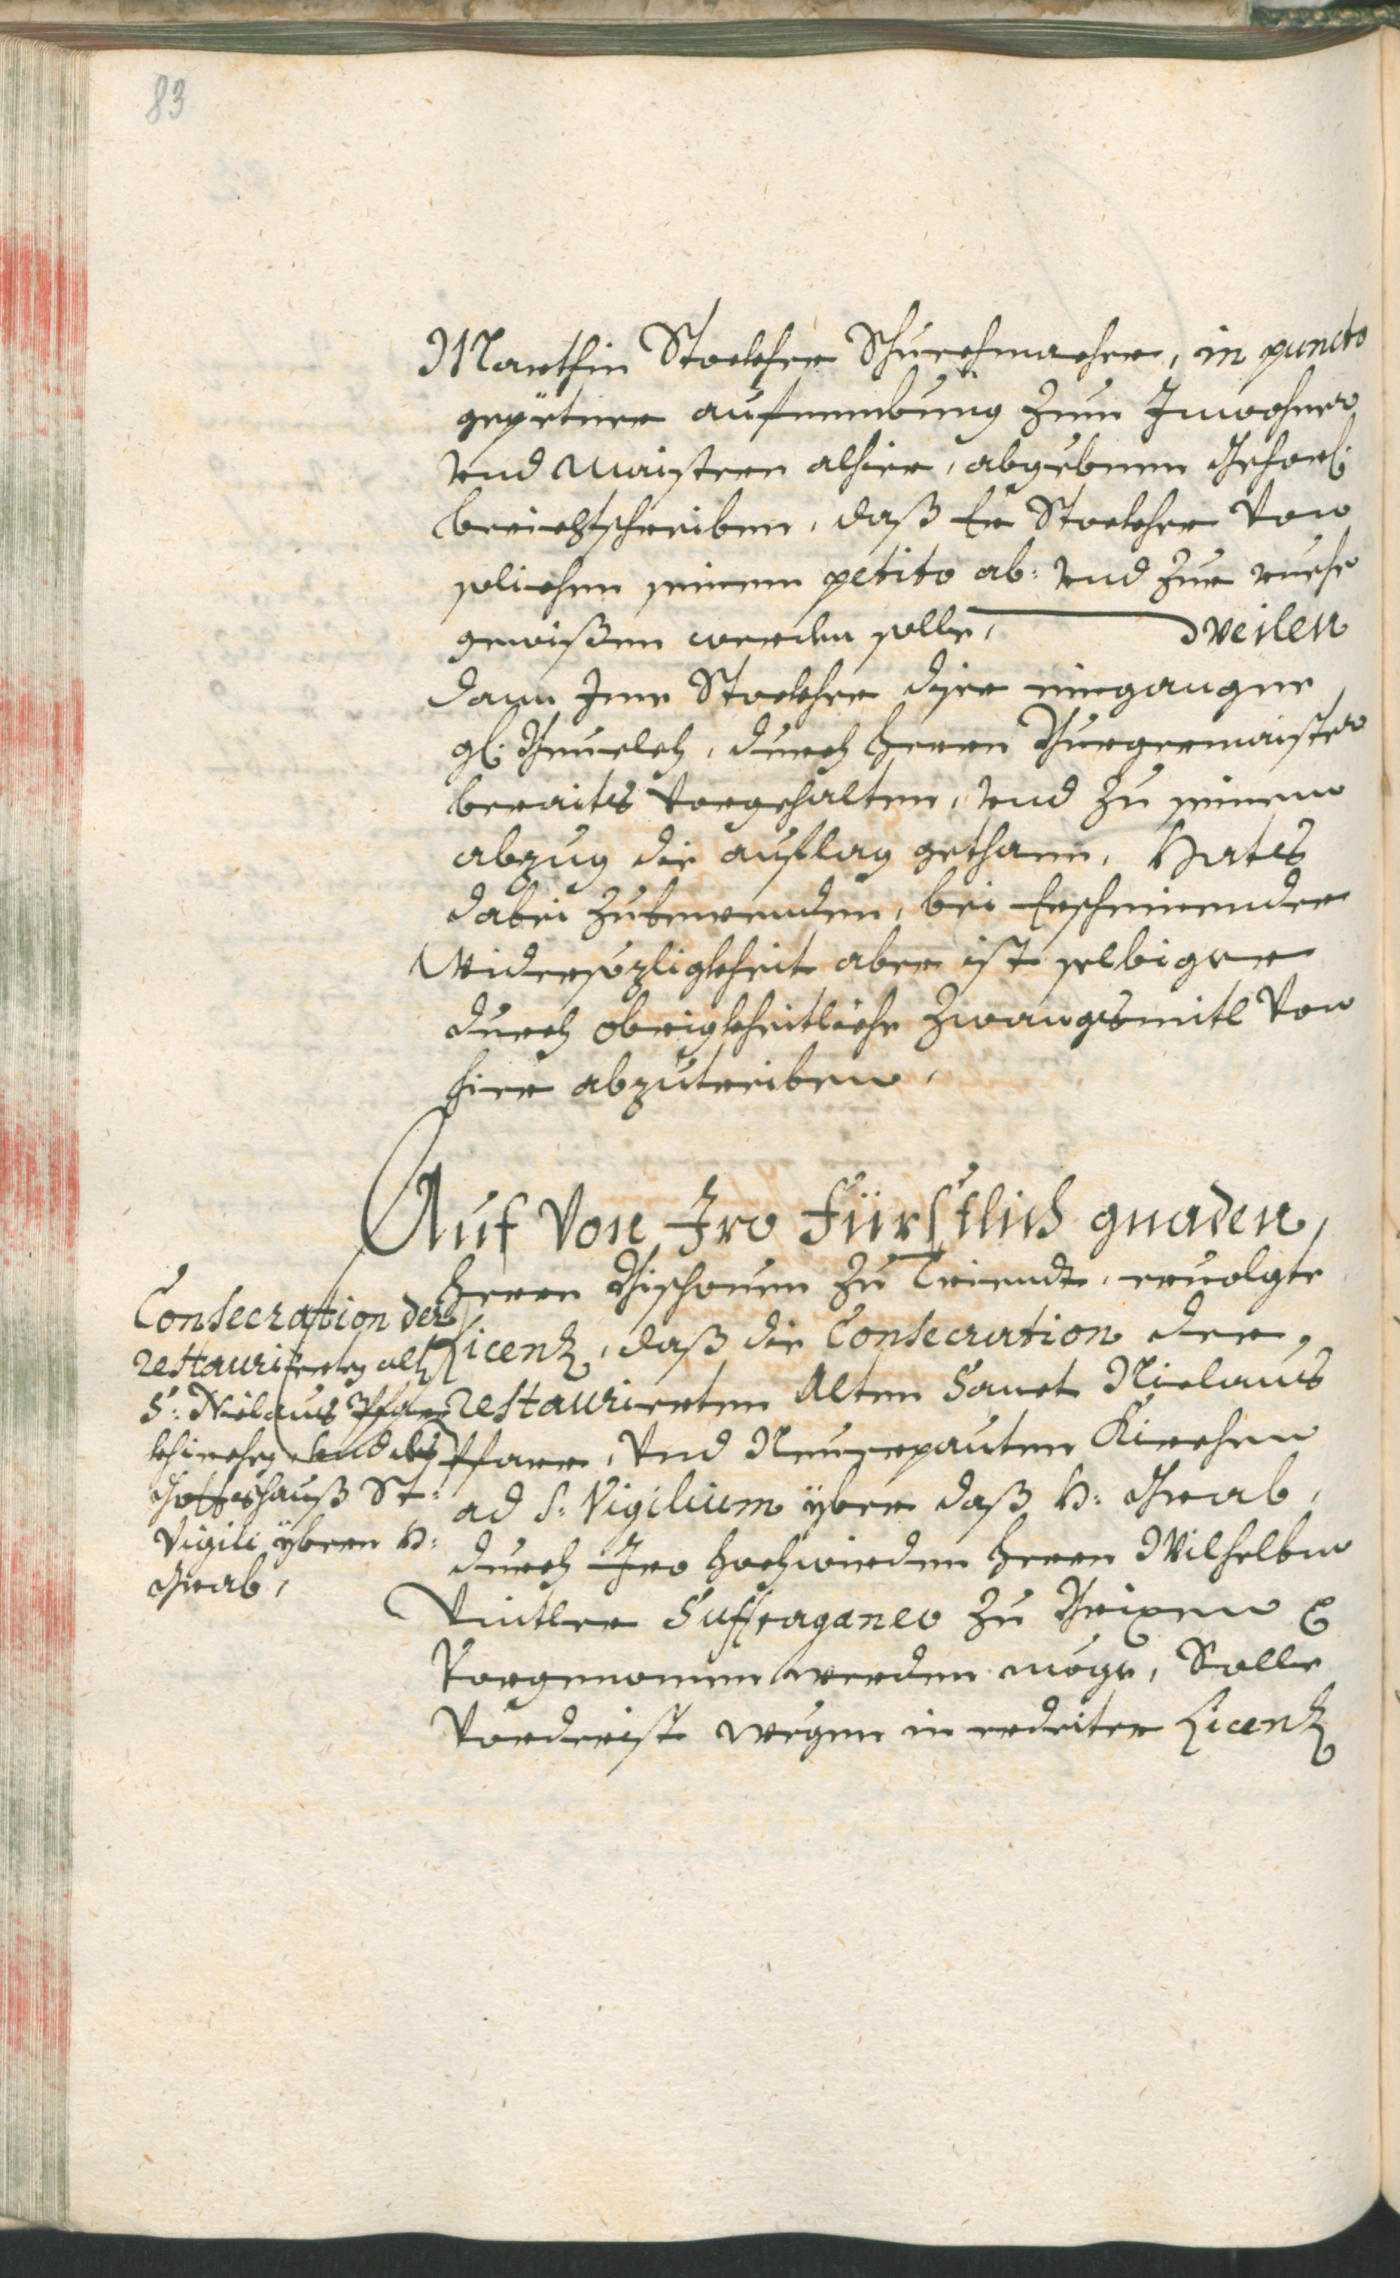 83
Marthin Stockher Schuechmacher, in puncto
gepetner aufnembung zum Inwohner
vnd Maistern alhier, abgebnem Gehors:
berichtschreiben, daß Er Stockher von
solichen seinem petito ab: vnd zur ruehe
gewißen werden solle, Weilen
dann Ime Stockher dise eingangne
durch herrn Burgermaister
beraits vorgehalten, vnd zu seinem
abzug die auflag gethann, Hat es
dabei zubewenden, bei Erscheinender
Widersözligkheit aber ist selbiger
durch obrigkheitliche Zwangsmitl von
hier abzutreiben.
Auf Von Iro Fürstlich gnaden,
Herrn Bischouen zu Triendt, eruolgte
Licenz, daß die Consecration der
restaurierten Alten Sanct Niclaus
Pfarr, vnd Neuerpauten Kirchen
ad S: Vigilium yber daß H: Grab,
durch Iro hochwirden herrn Wilhelbm
Vintler Suffraganeo zu Brixen
Vorgenomen werden möge, Solle
Vorderist wegen in erdeiter Licenz
Consecration der
restaurierten alt
S: Niclaus Pfarr
khirchen vnd des
Gottshauß St:
Vigili ybern H:
Grab,